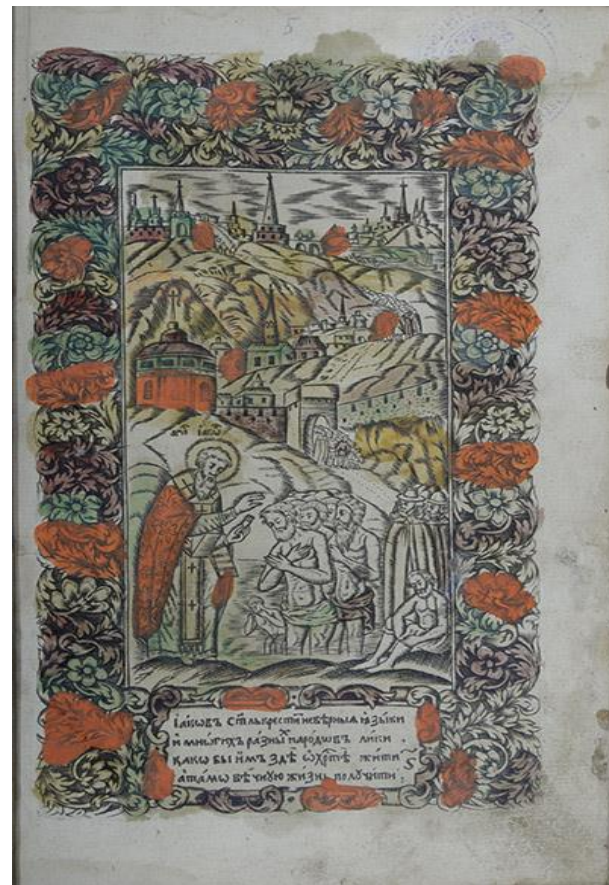 5
Іакѡвъ ст҃ль крести невѣрныя ꙗзыки
и мнѡгихъ разныⷯ нарѡдѡвъ лики .
какѡ бы имъ здѣ ѡ хр҃тѣ жити
а тамѡ вѣчную жизнь получити ;